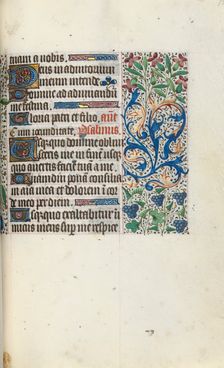 tuam a vobis.
Deus in adiutorium
meum intende
Domine ad adiuvandu
me festina.
Gloria patri et filio, ant
cū iocunditate. psalmus.
Usquequo domine oblivi
sceris me in finē usqe
quo avertis faciē tuā a me
Quamdiu ponā consilia
in aīa mea et dolorem ī cor
de meo per diem.
Usquequo exaltabitur ī
micus meus sup me respice